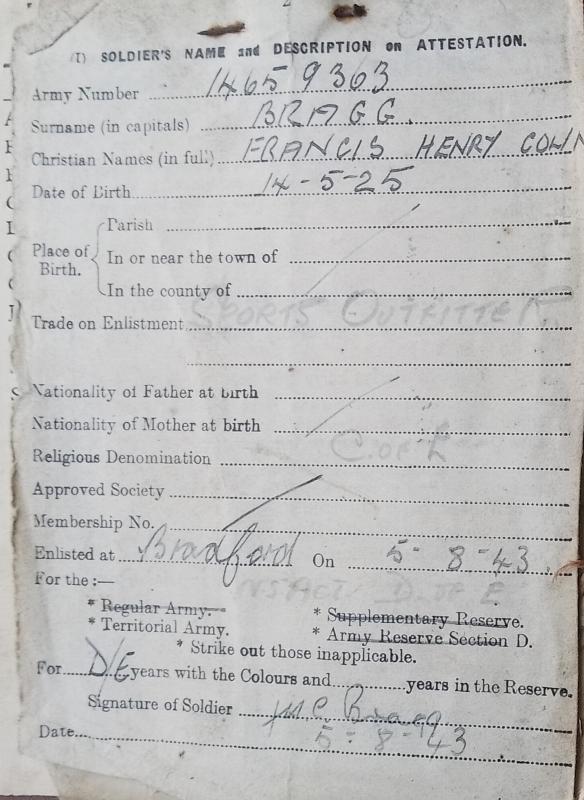 2
(I) SOLDIER'S NAME and DESCRIPTION on ATTESTATION.
Army Number 14659363
Surname (in capitals) BRAGG.
Christian Names (in full) FRANCIS HENRY COLIN
Date of Birth 14-5-25
Place of Birth.
Parish
In or near the town of
In the county of
Trade on Enlistment SPORTS OUTFITTER
Nationality of Father at birth
Nationality of Mother at birth
Religious Denomination C. OF E
Approved Society
Membership No.
Enlisted at Bradford On 5-8-43.
For the :— D of E
* Regular Army. * Supplementary Reserve.
* Territorial Army. * Army Reserve Section D.
* Strike out those inapplicable.
For D/E years with the Colours and years in the Reserve.
Signature of Soldier Bragg
Date 5-8-43